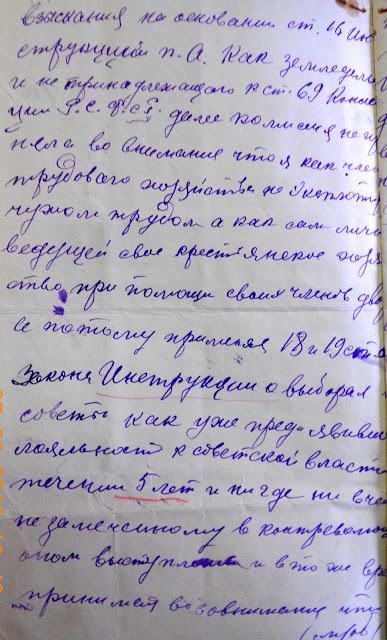 взыскания на основании ст. 16 Ин
струкции п. А. Как земледель
и не принадлежащого к ст. 69 Конс
ции Р.С.Ф.С.Р. далее комисия не
нела во внимание что я как член
трудового хозяйства не
чужом трудом а как сам лич
ведущей свое крестянское хозя
ство при помощи своих членов дво
и потому применяя 18 и 19
Закона Инструкции о выборах
советы как уже пред'явивш
лояльност к советской власти
течении 5 лет и нигде ни в че
не замеченому в контреволю
оном и в то же вре
принимая во вовнимание что